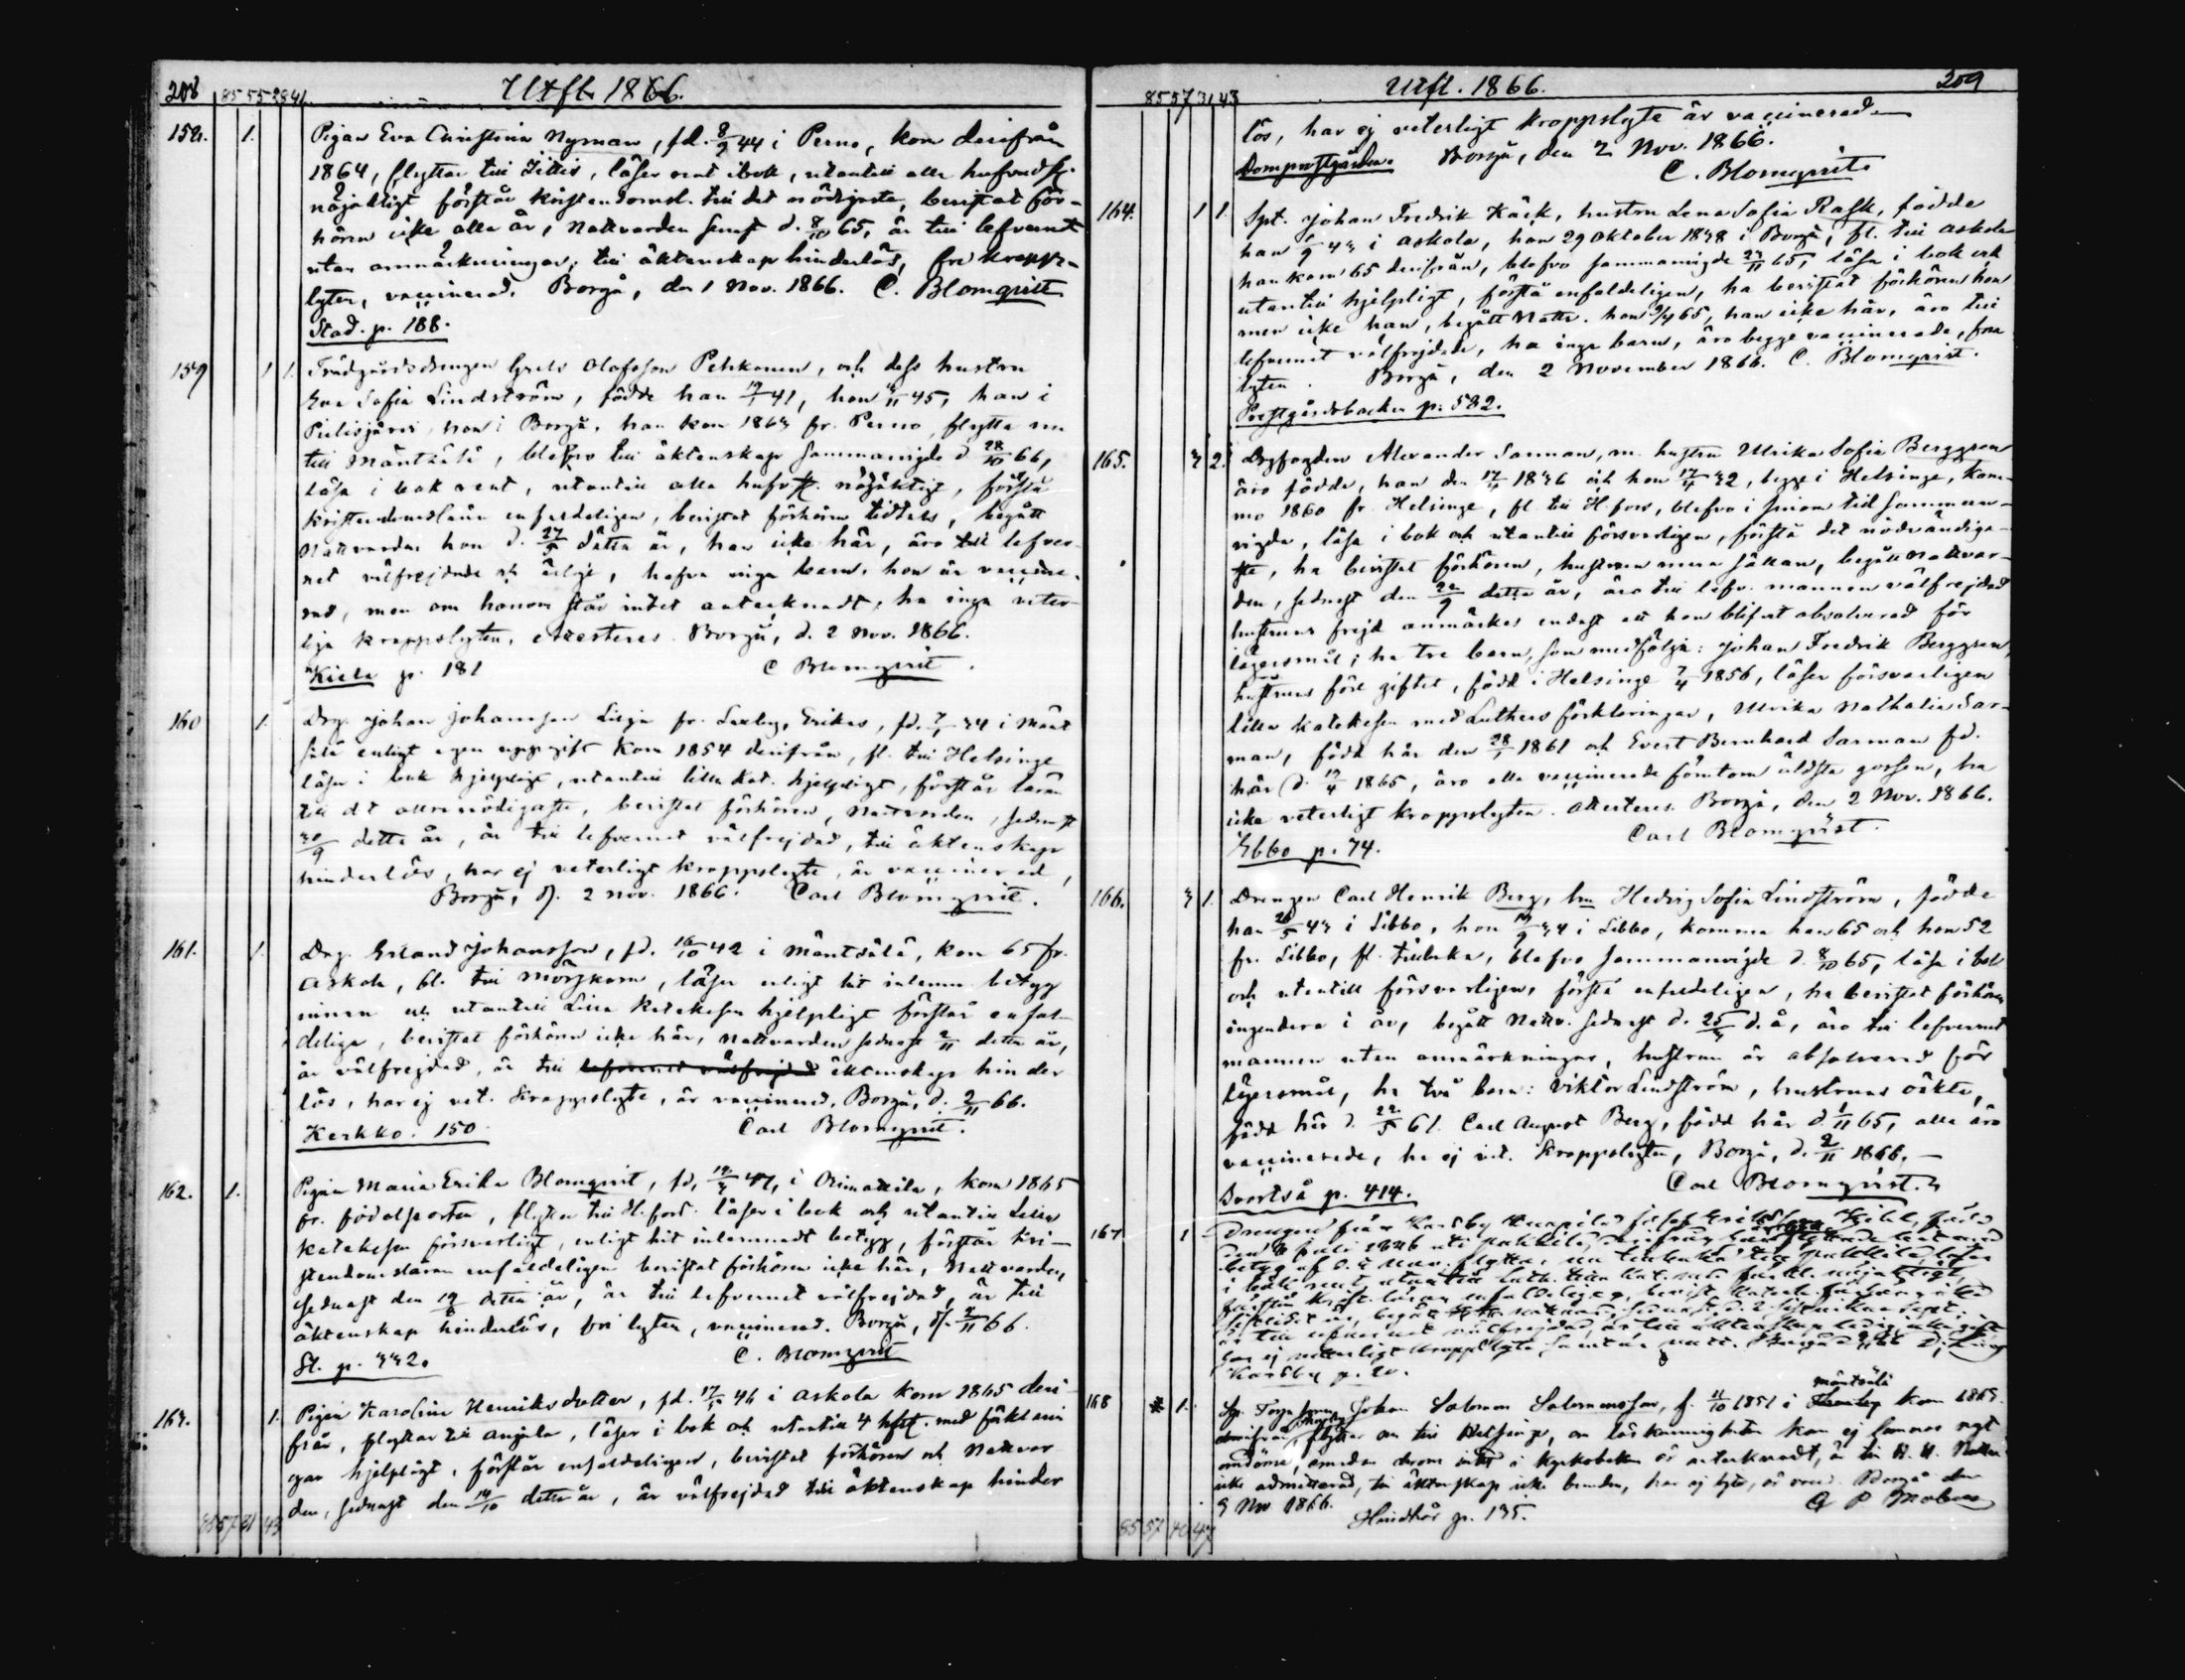 208 85 55 28 41. Utfl. 1866.
158. 1. Pigan Eva Christina Nyman, fd. 8/9 44 i Perno, kom derifrån
1864, flyttar till Ititis, läser rent i bok, utantill alla hufvudst.
nöjaktigt förstår kristendomsl. till det nödigaste, bevistat för-
hören icke alla år, Nattvarden senast d. 8/10 65, är till lefvernet
utan anmärkningar, till äktenskap hinderlös, fri kropps-
lyten, vaccinerad. Borgå, den 1 Nov. 1866. C. Blomqvist
Stad. p. 188.
159 1 1. Trädgårdsdrengen Grels Olofsson Pehkonen, och dess hustru
Eva Sofia Lindström, födde han 19/1 41, hon /11 45, han i
Pielisjärvi hon i Borgå, han kom 1863 fr. Perno, flytta nu
till Mäntsälä, blefvo till äktenskap sammanvigde d 28/10 66,
läsa i bok rent, utantill alla hufvst. nöjaktigt, förstå
kristendomsläran enfaldeligen, bevistat förhören tidtals, begått
Nattvarden hon d. 27/5 detta år, han icke här, äro till lefver-
net välfrejdade och ärlige, hafva inga barn, hon är vaccine-
rad, men om honom står intet antecknadt, ha inga veter-
liga kroppslyten, attesteras. Borgå, d. 2 Nov. 1866.
Kiela p. 181 C Blomqvist.
160 1. Drg. Johan Johansson Lilja fr. Saxby, Erikas, fd. 7/7 34 i Mänt
sälä enligt egen uppgift kom 1854 derifrån, fl. till Helsinge
läser i bok hjelpligt, utantill lilla kat. hjelpligt, förstår läran
till det allranödigaste, bevistat förhören, Nattvarden, sednast
30/9 detta år, är till lefvernet välfrejdad, till äktenskap
hinderlös, har ej veterligt kroppslyte, är vaccinerad,
Borgå, d. 2 nov. 1866. Carl Blomqvist.
161. 1. Drg. Erland Johansson, fd. 16/10 42 i Mäntsälä, kom 65 fr.
Askola, fl. till Mörskom, läser enligt hit inlemn. betyg
innan och utantill Lilla Katekesen hjelpligt förstår enfal-
deliga, bevistat förhören icke här, Nattvarden sednast 2/11 detta år,
är välfrejdad, är till lefvernet välfrejdad äktenskap hinder
lös, har ej vet. kroppslyte, är vaccinerad, Borgå, d. 2/11 66.
Kerkko. 150 Carl Blomqvist.
162. 1. Pigan Maria Erika Blomqvist, fd, 12/3 47, i Orimattila, kom 1865
fr. födelseorten, flyttar till H.fors. läser i bok och utantill Lilla
Katekesen försvarligt, enligt hit inlemnadt betyg, förstår kri-
stendomsläran enfaldeligen bevistat förhören icke här, Nattvarden,
sednast den 12/ detta år, är till lefvernet välfrejdad, är till
äktenskap hinderlös, fri lyten, vaccinerad. Borgå, d. 2/11 66.
St. p. 332. C. Blomqvist
163. 1. Pigan Karolina Henriksdotter, fd. 17/5 46 i Askola kom 1865 deri-
från, flyttar till Anjala, läser i bok och utantill 4 hfst. med förklarin
gar hjelpligt, förstår enfaldeligen, bevistat förhören och Nattvar
den, sednast den 14/10 detta år, är välfrejdad till äktenskap hinder
85 57 31 43
85 57 31 43 Utfl. 1866. 209
lös, har ej veterligt kroppslyte är vaccinerad
Domprostgården. Borgå, den 2 Nov. 1866.
C. Blomqvist.
164. 1 1. Spt. Johan Fredrik Käck, hustru Lena Sofia Rask, födde
han /9 43 i Askola, hon 29 Oktober 1838 i Borgå, fl. till Askola
han kom 65 derifrån, blefvo sammanvigde 23/11 65, läsa i bok och
utantill hjelpligt, förstå enfaldeligen, ha bevistat förhören hon
men icke han, begått Nattv. hon 9/4 65, han icke här, äro till
lefvernet välfrejdade, ha inga barn, äro begge vaccinerade, fria
lyten. Borgå, den 2 November 1866. C. Blomqvist.
Prostgårdsbacken p. 582.
165. 3 2. Drgfogden Alexander Sarman, m. hustru Ulrika Sofia Berggren
äro födde, han den 17/4 1836 och hon 17/4 32, begge i Helsinge, kom-
mo 1860 fr. Helsinge, fl. till H.fors, blefvo i sinom tid samman-
vigde, läsa i bok och utantill försvarligen, förstå det nödvändiga-
ste, ha bevistat förhören, hustrun mera sällan, begått Nattvar-
den, sednast den 22/9 detta år, äro till lefv. mannen välfrejdad
hustruns frejd anmärkes endast att hon blifvit absolverad för
lägersmål; ha tre barn, som medfölja: Johan Fredrik Berggren,
hustruns före giftet, född i Helsinge 7/4 1856, läser försvarligen
lilla Katekesen med Luthers förklaringar, Ulrika Nathalia Sar-
man, född här den 28/1 1861 och Evert Bernhard Sarman fd.
här d. 19/4 1865, äro alla vaccinerade förutom äldsta gossen, ha
icke veterligt kroppslyten. attesteras. Borgå, den 2 Nov. 1866.
Ebbo p. 74. Carl Blomqvist.
166. 3 1. Drengen Carl Henrik Berg, hm Hedvig Sofia Lindström, födde
han 26/5 43 i Sibbo, hon 19/9 34 i Sibbo, komna han 65 och hon 52
fr. Sibbo, fl. tillbaka, blefvo sammanvigde d. 8/10 65, läsa i bok
och utantill försvarligen, förstå enfaldeligen, ha bevistat förhören
ingendera i år, begått Nattv. sednast d. 25/ d. å, äro till lefvernet
mannen utan anmärkningar, hustrun är absolverad för
lägersmål, ha två barn: Viktor Lindström, hustruns oäkta,
född här d. 22/5 61. Carl August Berg, född här d 1/11 65, alla äro
vaccinerade, ha ej vet. kroppslyten, Borgå, d. 2/11 1866.
Svartså p. 414. Carl Blomqvist.
167 1 Drengen från Karsby
i bok rent, utantill Luth. lilla Kat. nöjaktigt,
Karsby p. 20.
168 1. Johan Salomon Salomonsson, f. 11/10 1851 i Mäntsälä kom 1865
derifrån, flyttar nu till Helsinge, om läskunnigheten kan ej lemnas något
omdöme, emedan derom intet i kyrkoboken är antecknadt, är till H. H. Nattv.
icke admitterad, till äktenskap icke bunden, har ej lyte, är vacc. Borgå den
9 Nov 1866.
Hindhår p. 135.
85 57